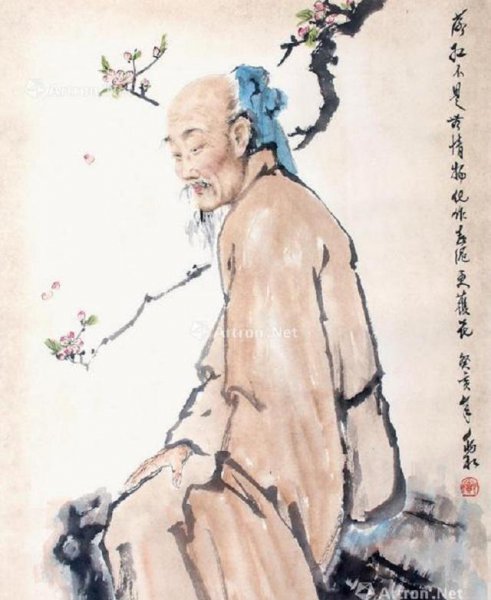 落红不是無情物化作春泥更護花 癸亥年
Artron.Net
Artron.Net
Artron.Net